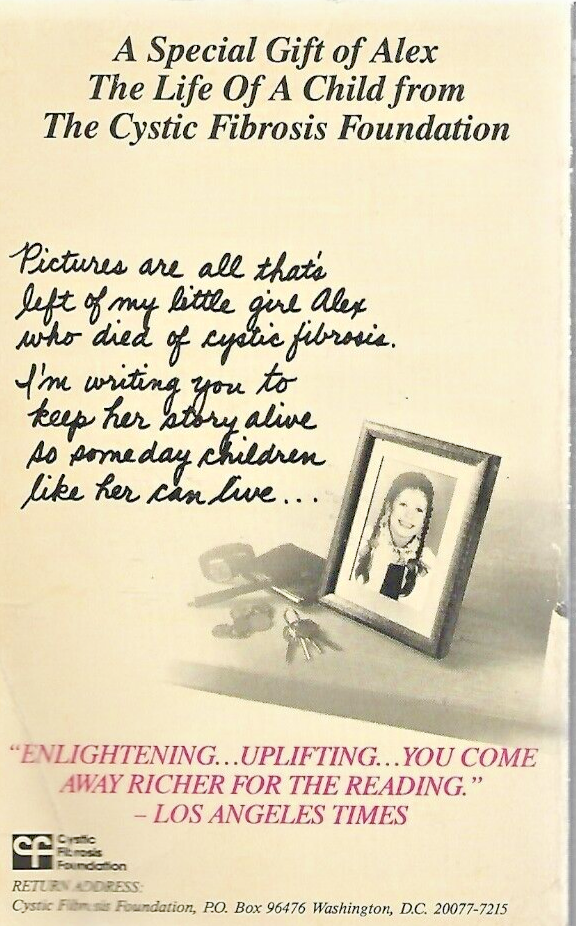 A Special Gift of Alex
The Life Of A Child from
The Cystic Fibrosis Foundation
Pictures are all that's
left of my little girl Alex
who died of cystic fibrosis.
I'm writing you to
keep her story alive
so someday children
like her can live...
"ENLIGHTENING...UPLIFTING...YOU COME
AWAY RICHER FOR THE READING."
– LOS ANGELES TIMES
cf
Cystic
Fibrosis
Foundation
RETURN ADDRESS:
Cystic Fibrosis Foundation, P.O. Box 96476 Washington, D.C. 20077-7215